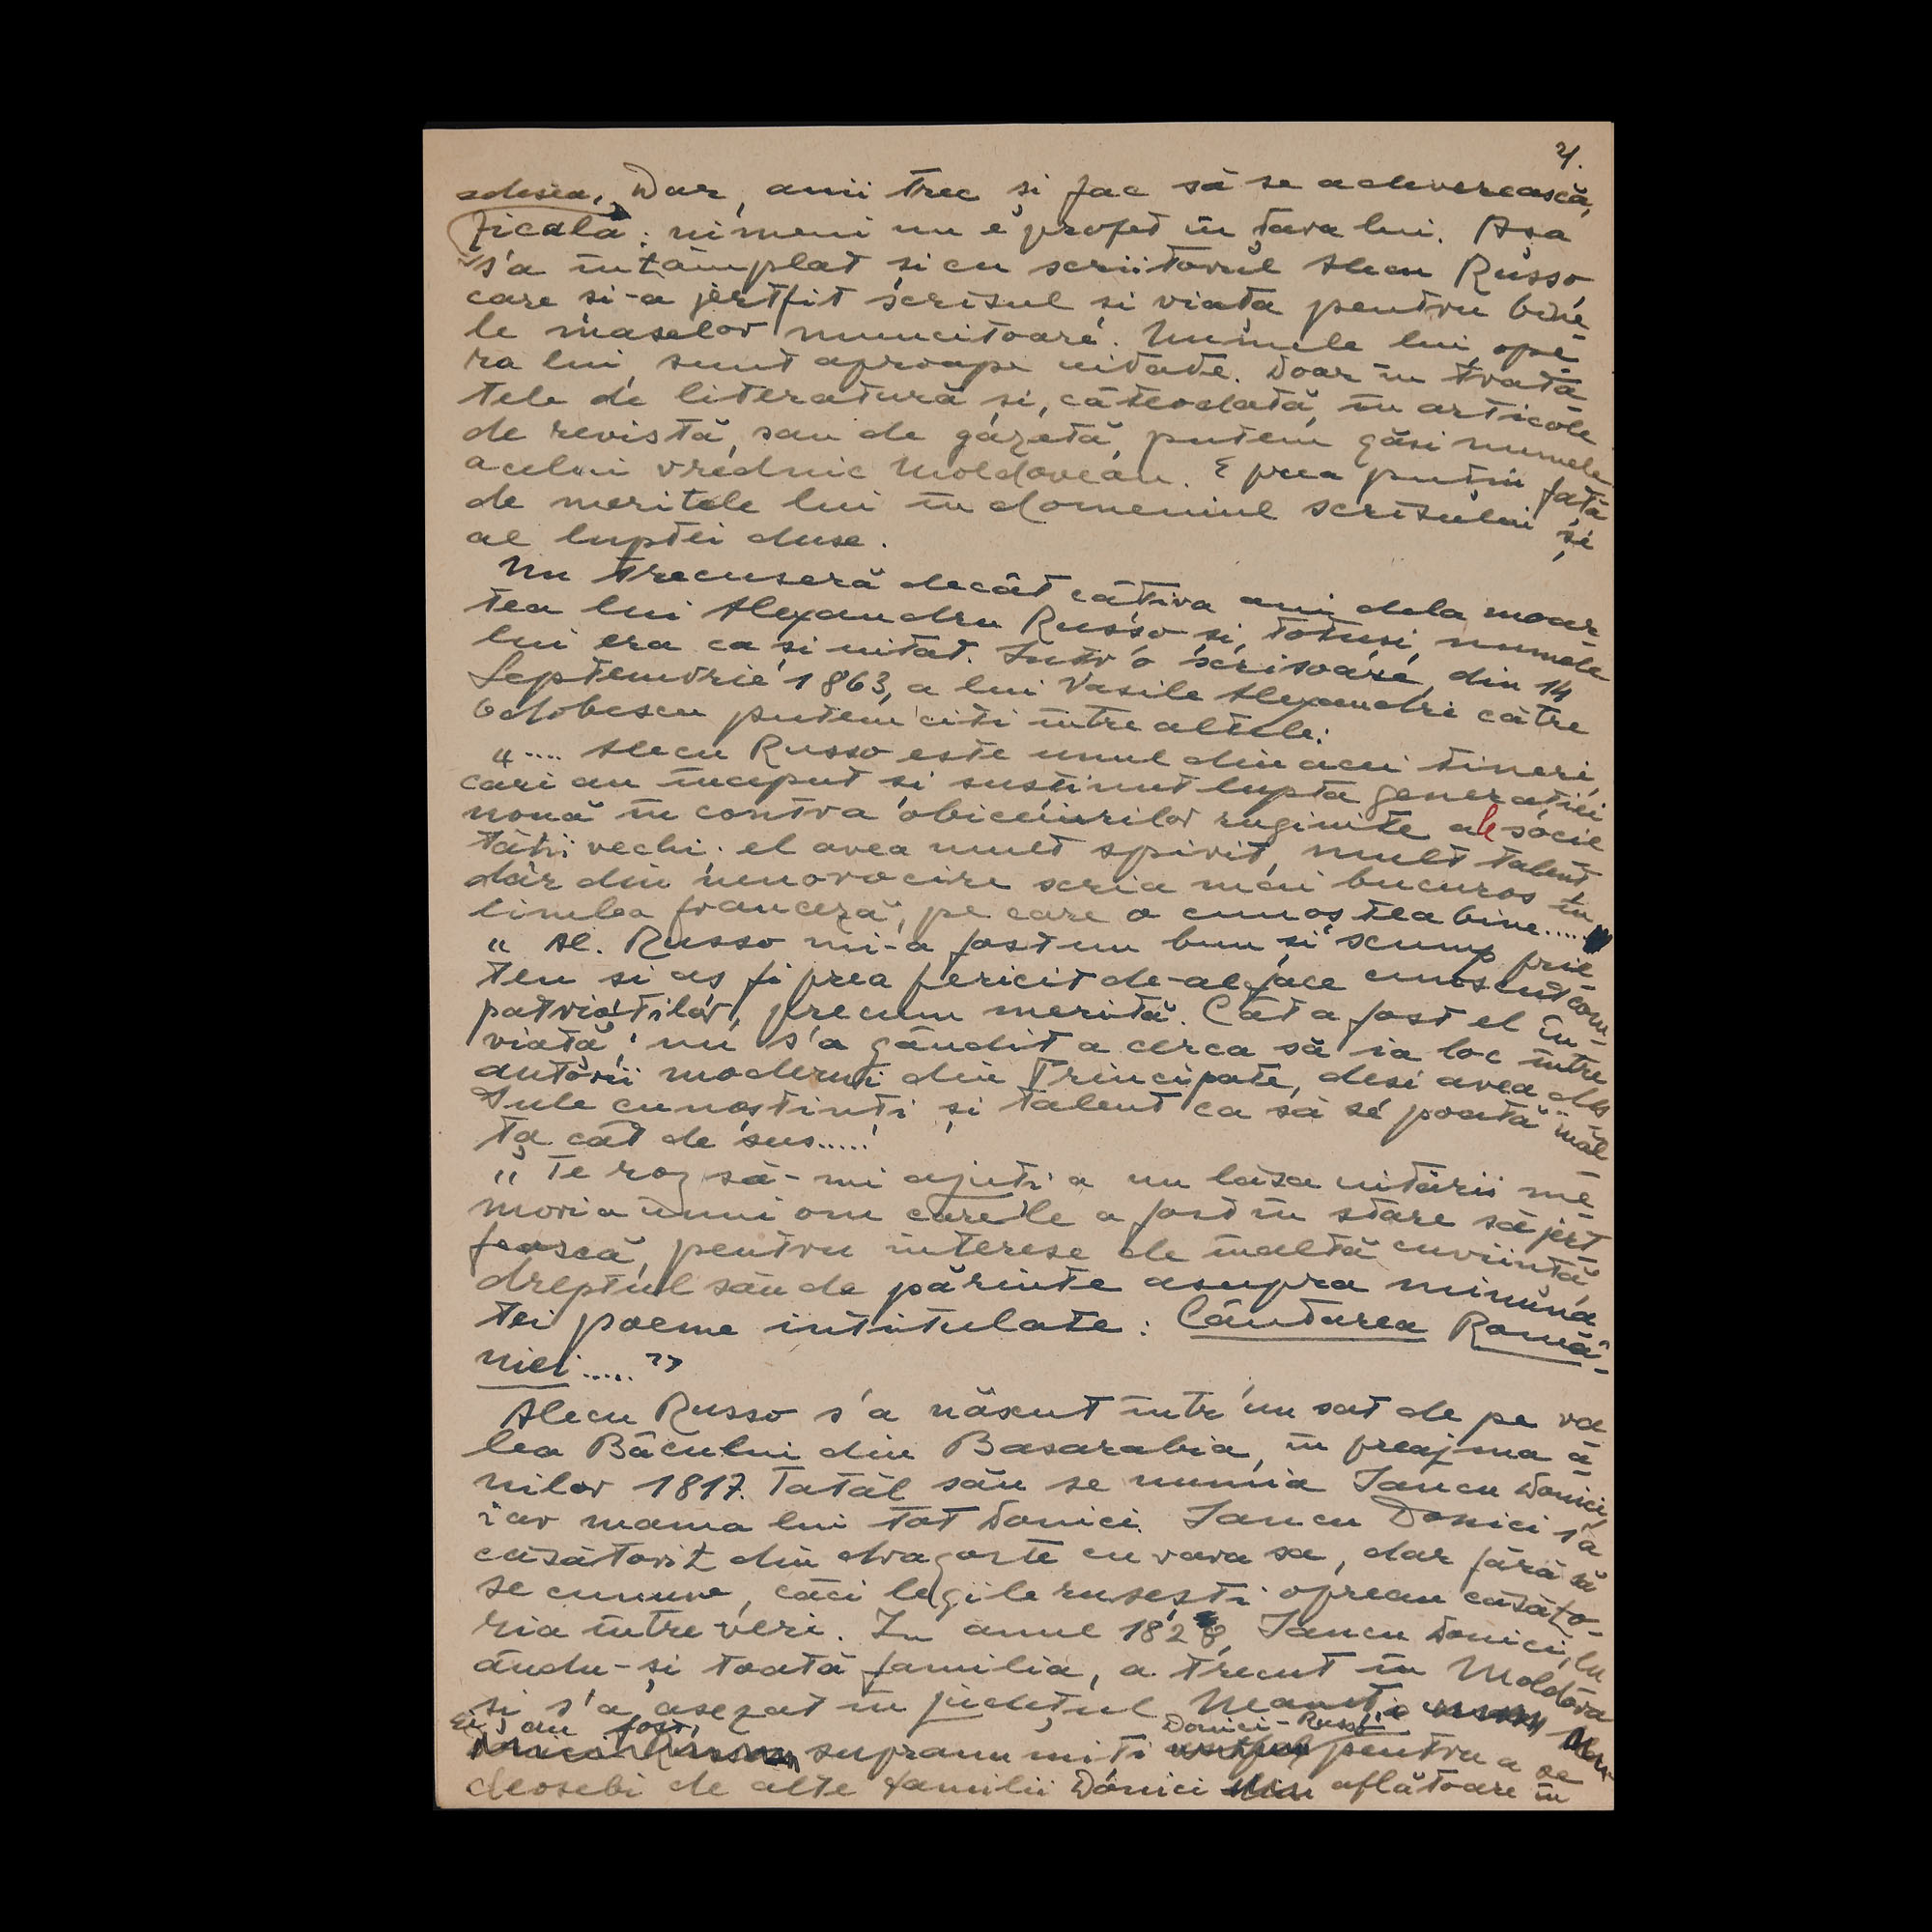 4.
adesea. Dar, anii trec și fac să se adeverească,
zicala: nimeni nu e profet în țara lui. Așa
s'a întâmplat și cu scriitorul Alecu Russo
care și-a jertfit scrisul și viața pentru bine-
le maselor muncitoare. Numele lui, ope-
ra lui, sunt aproape uitate. Doar în trata-
tele de literatură și, câteodată, în articole
de revistă, sau de gazetă, putem găsi numele
acelui vrednic Moldovean. E prea puțin față
de meritele lui în domeniul scrisului și
al luptei duse.
Nu trecuseră decât câțiva ani dela moar-
tea lui Alexandru Russo și, totuși, numele
lui era ca și uitat. Intr'o scrisoare, din 14
Septemvrie 1863, a lui Vasile Alexandri către
Odobescu putem citi între altele:
".... Alecu Russo este unul din acei tineri,
cari au început și susținut lupta generației
nouă în contra obiceiurilor ruginite ale socie-
tății vechi; el avea mult spirit, mult talent,
dar din nenorocire scria mai bucuros în
limba franceză, pe care o cunoștea bine.....
" Al. Russo mi-a fost un bun și scump prie-
ten și aș fi prea fericit de-al face cunoscut com-
patrioților, precum merită. Cât a fost el în-
viață, nu s'a gândit a cerca să ia loc între
autorii moderni din Principate, deși avea des-
tule cunoștinți și talent ca să se poată înăl-
ța cât de sus.....
" Te rog să-mi ajuți a nu lăsa uitării me-
moria unui om carele a fost în stare să jert-
fească, pentru interese de înaltă cuviință,
dreptul său de părinte asupra minuna-
tei poeme intitulate: Cântarea Româ-
niei....."
Alecu Russo s'a născut într'un sat de pe va-
lea Bâcului din Basarabia, în preajma a-
nilor 1817. Tatăl său se numia Iancu Donici,
iar mama lui tot Donici. Iancu Donici s'a
căsătorit din dragoste cu vara sa, dar fără să
se cunune, căci legile rusești opreau căsăto-
ria între veri. In anul 1828, Iancu Donici, lu-
ându-și toată familia, a trecut în Moldova
și s'a așezat în județul Neamț.
Ei au fost supranumiți Donici-Russo pentru a se
deosebi de alte familii Donici aflătoare în